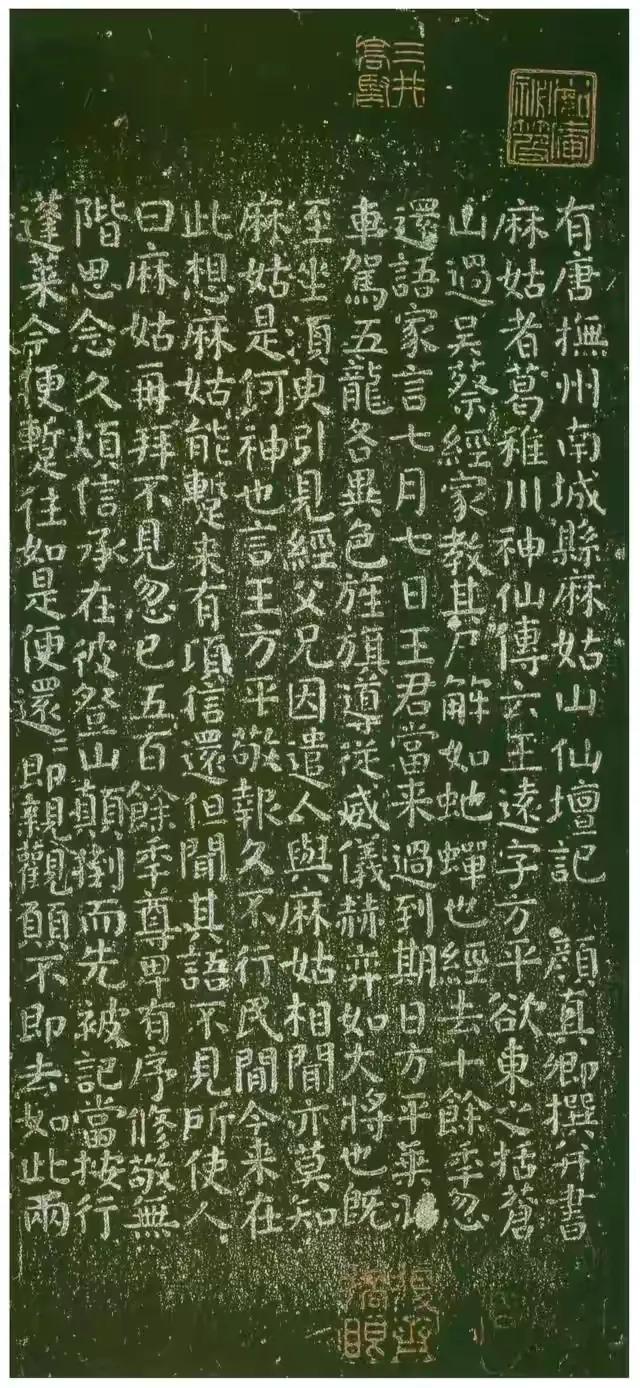 三井高堅
有唐撫州南城縣麻姑山仙壇記 顏真卿撰并書
麻姑者葛稚川神仙傳云王遠字方平欲東之括蒼
山過吳蔡經家教其尸解如虵蟬也經去十餘秊忽
還語家言七月七日王君當来過到期日方平乗
車駕五龍各異色旌旗導從威儀赫弈如大將也既
至坐須臾引見經父兄因遣人與麻姑相聞亦莫知
麻姑是何神也言王方平敬報久不行民間今来在
此想麻姑能蹔来有頃信還但聞其語不見所使人
曰麻姑再拜不見忽已五百餘秊尊卑有序修敬無
階思念久煩信承在彼登山顛倒而先被記當按行
蓬萊今便蹔往如是便還〻即親觀願不即去如此兩